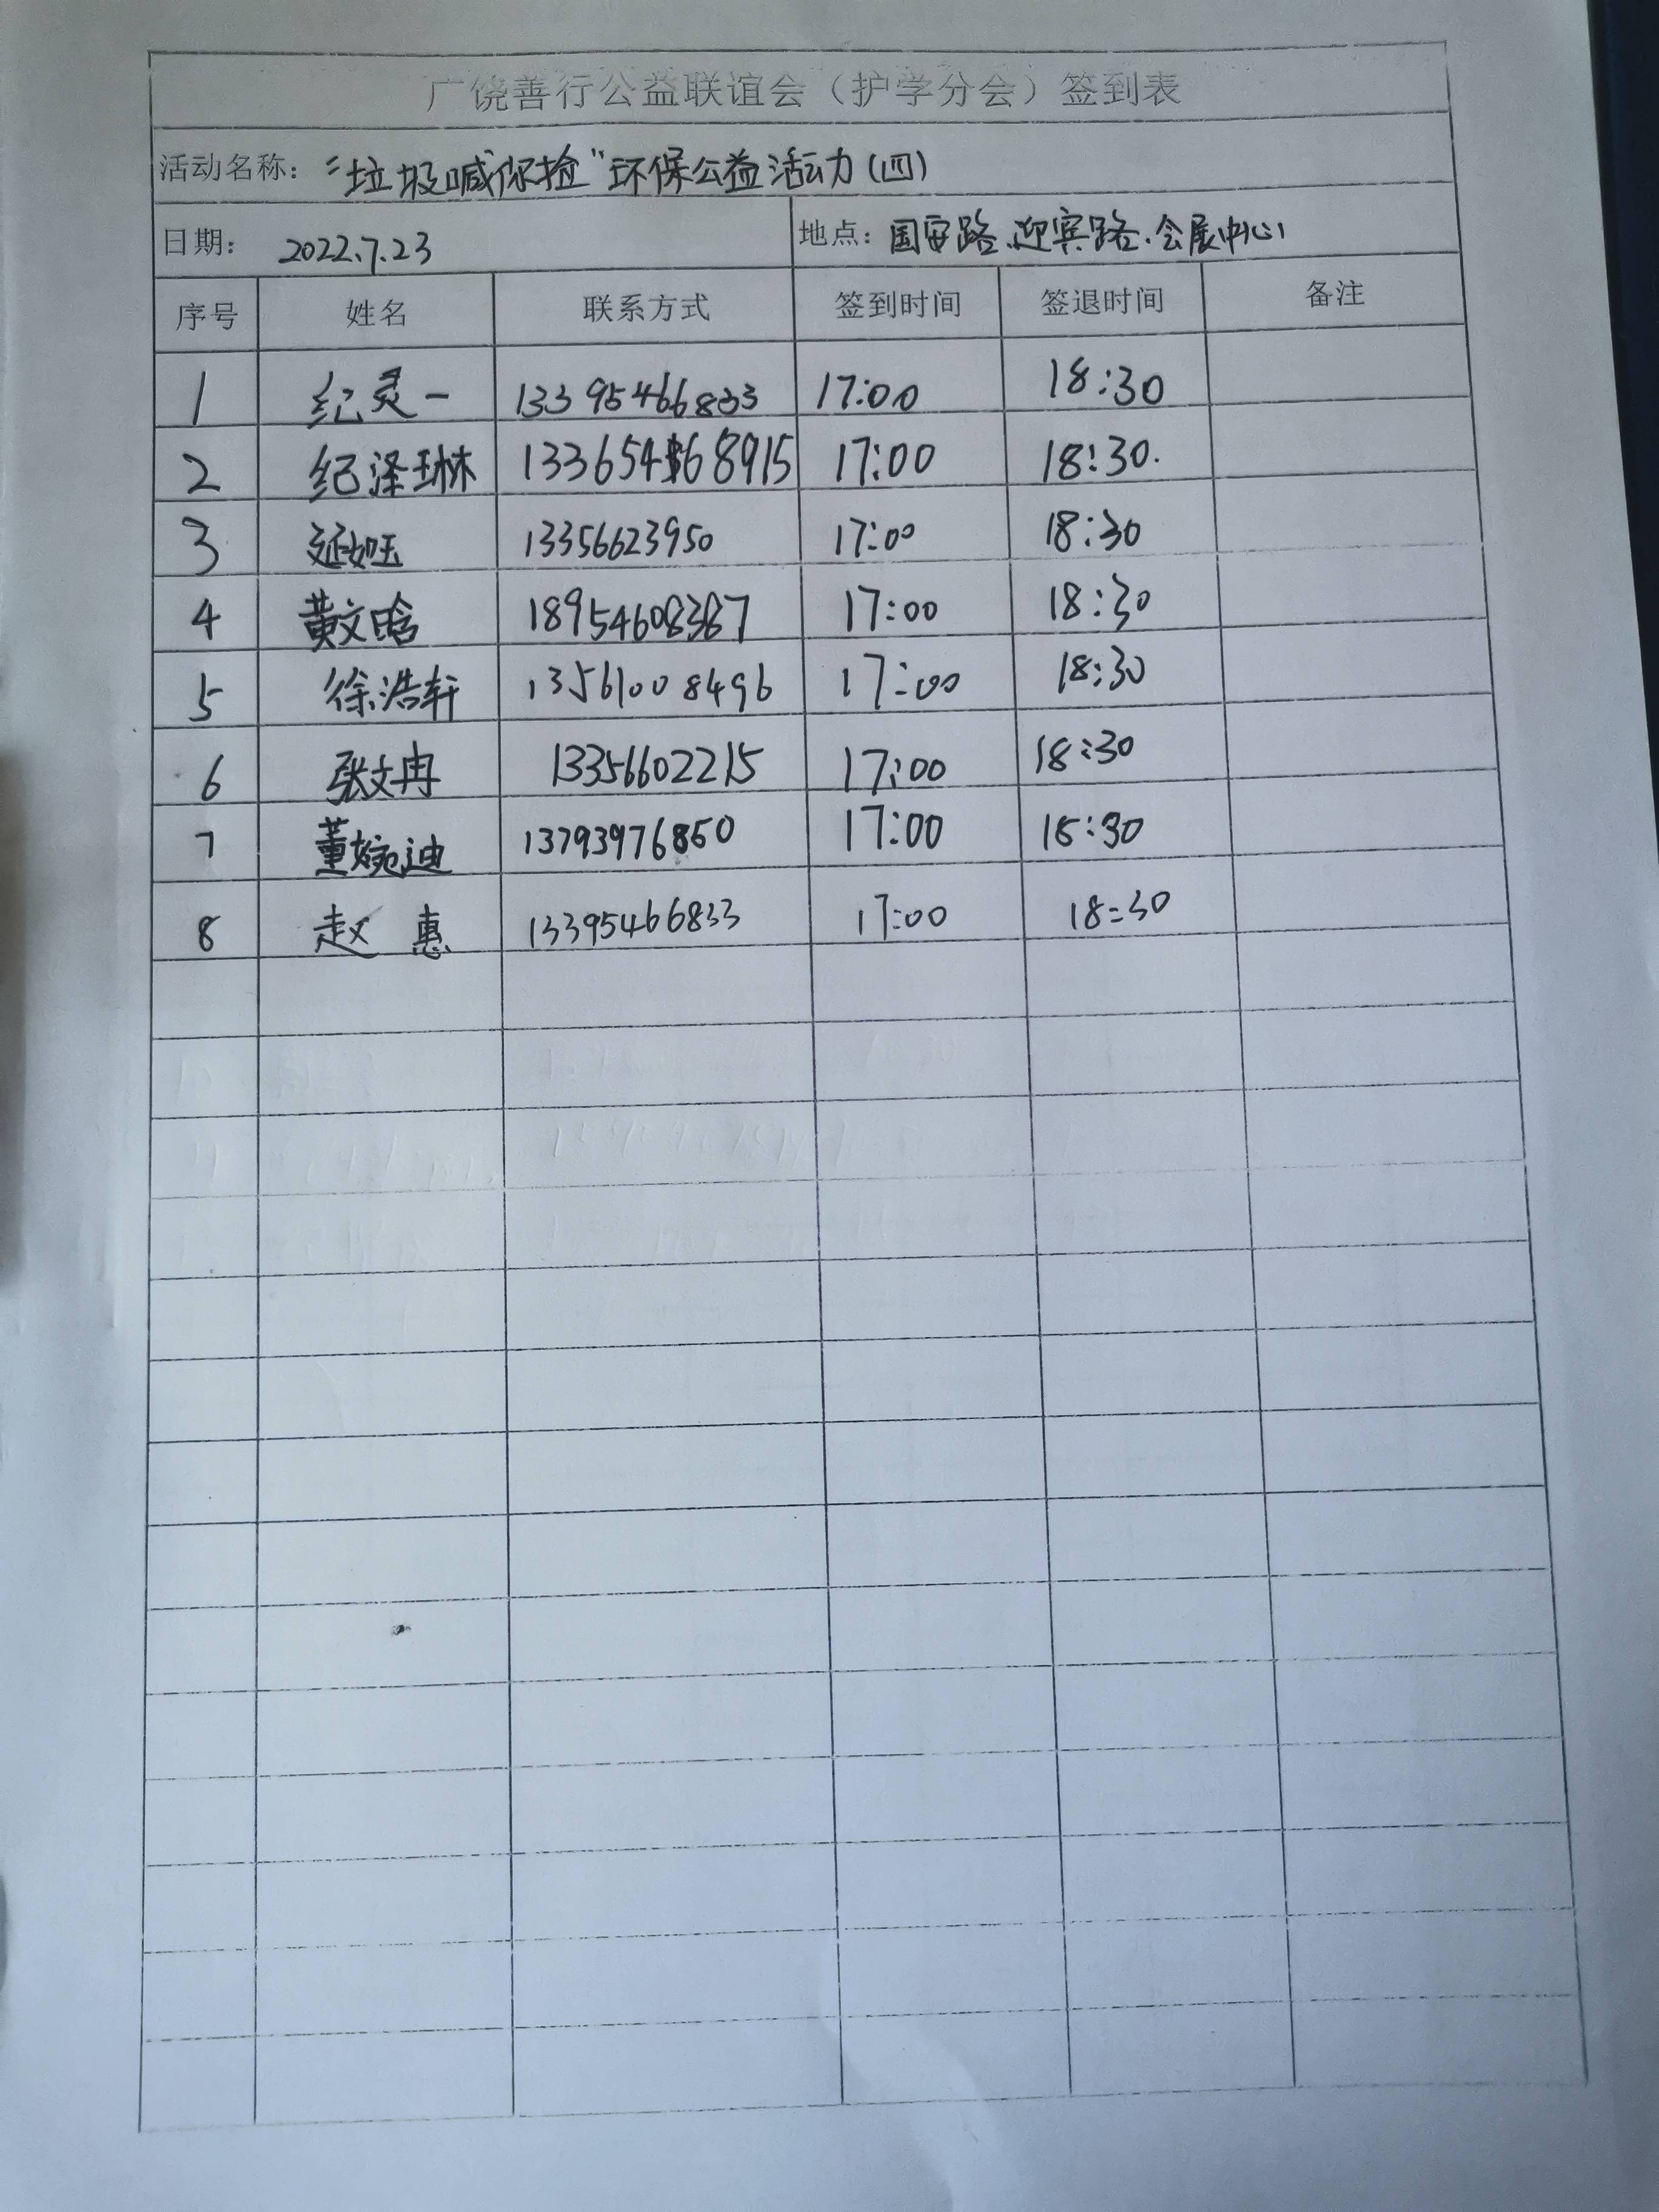 广饶善行公益联谊会（护学分会）签到表
活动名称：“垃圾喊你捡”环保公益活动(四)
日期： 2022.7.23 地点：国安路.迎宾路.会展中心
序号 姓名 联系方式 签到时间 签退时间 备注
1 纪灵一 13395466833 17:00 18:30
2 纪泽琳 13365468915 17:00 18:30.
3 延如玉 13356623950 17:00 18:30
4 黄文晗 18954608387 17:00 18:30
5 徐浩轩 13561008496 17:00 18:30
6 张文冉 13356602215 17:00 18:30
7 董婉迪 13793976860 17:00 18:30
8 赵惠 13395466833 17:00 18:30